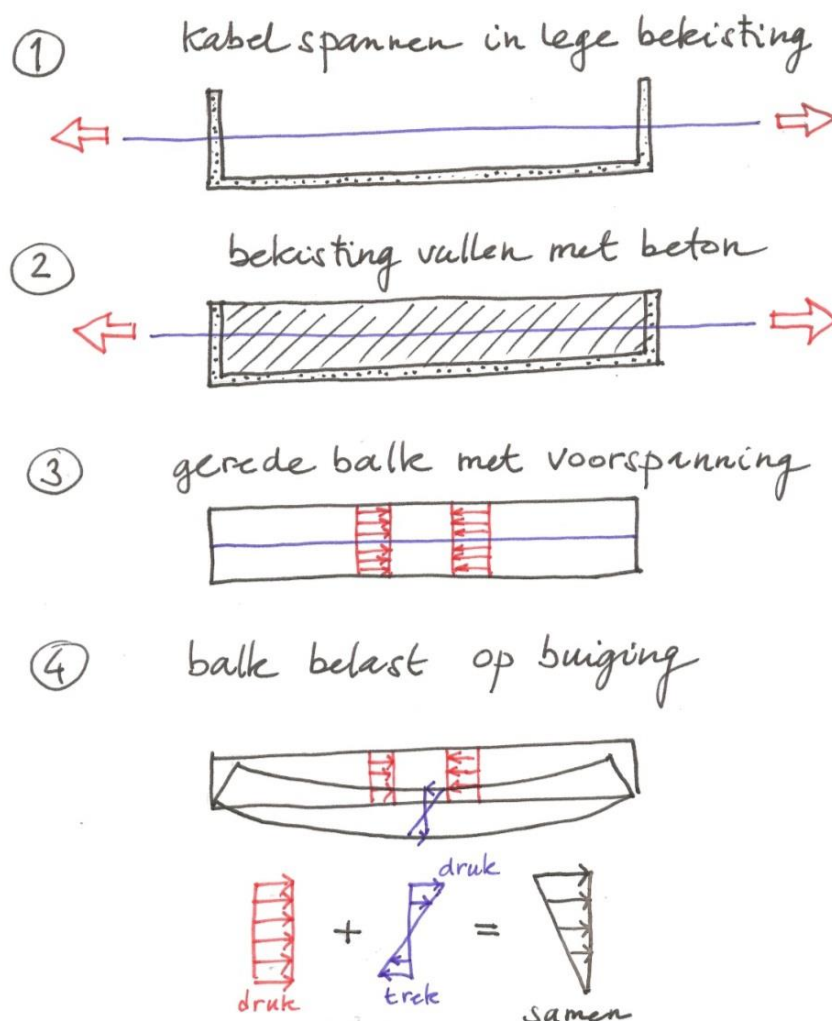 1
kabel spannen in lege bekisting
2
bekisting vullen met beton
3
gerede balk met voorspanning
4
balk belast op buiging
druk
+
=
druk
trek
samen